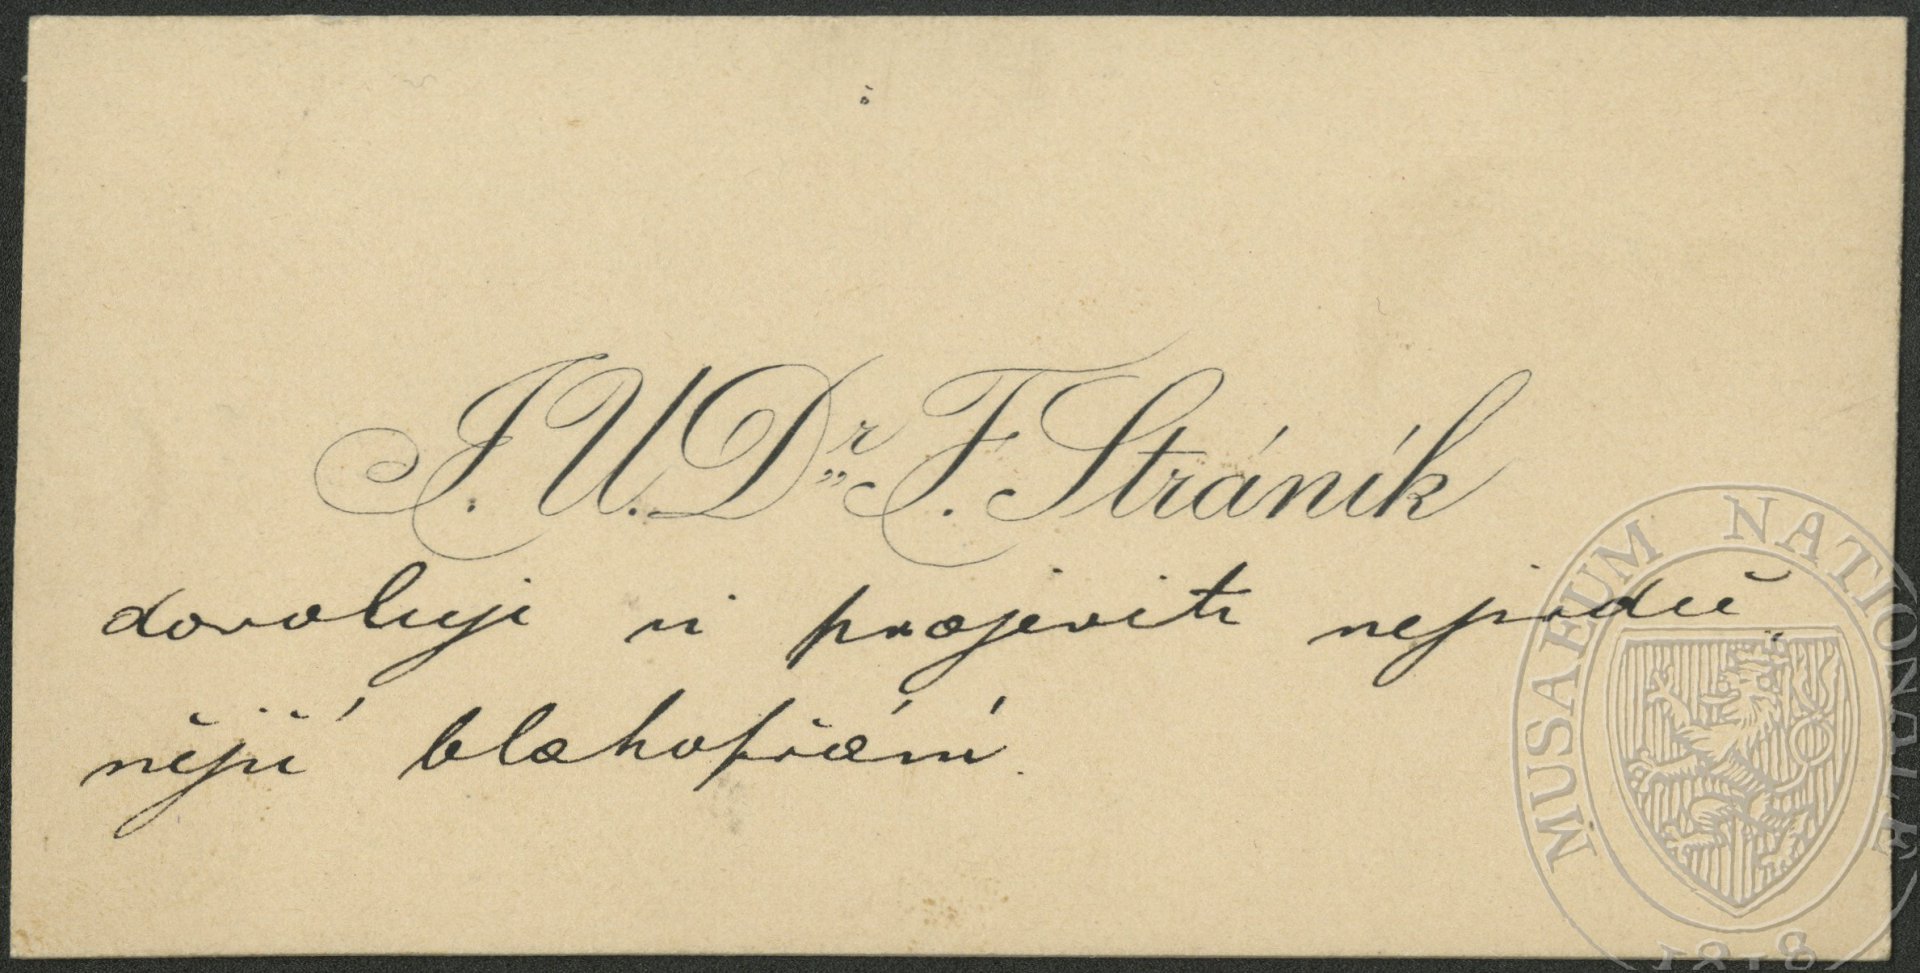 J. U. Dr. F. Stráník
dovoluji si projeviti nejsrdeč„
nější blahopřání.
MUSAEUM NATIONALE
1818